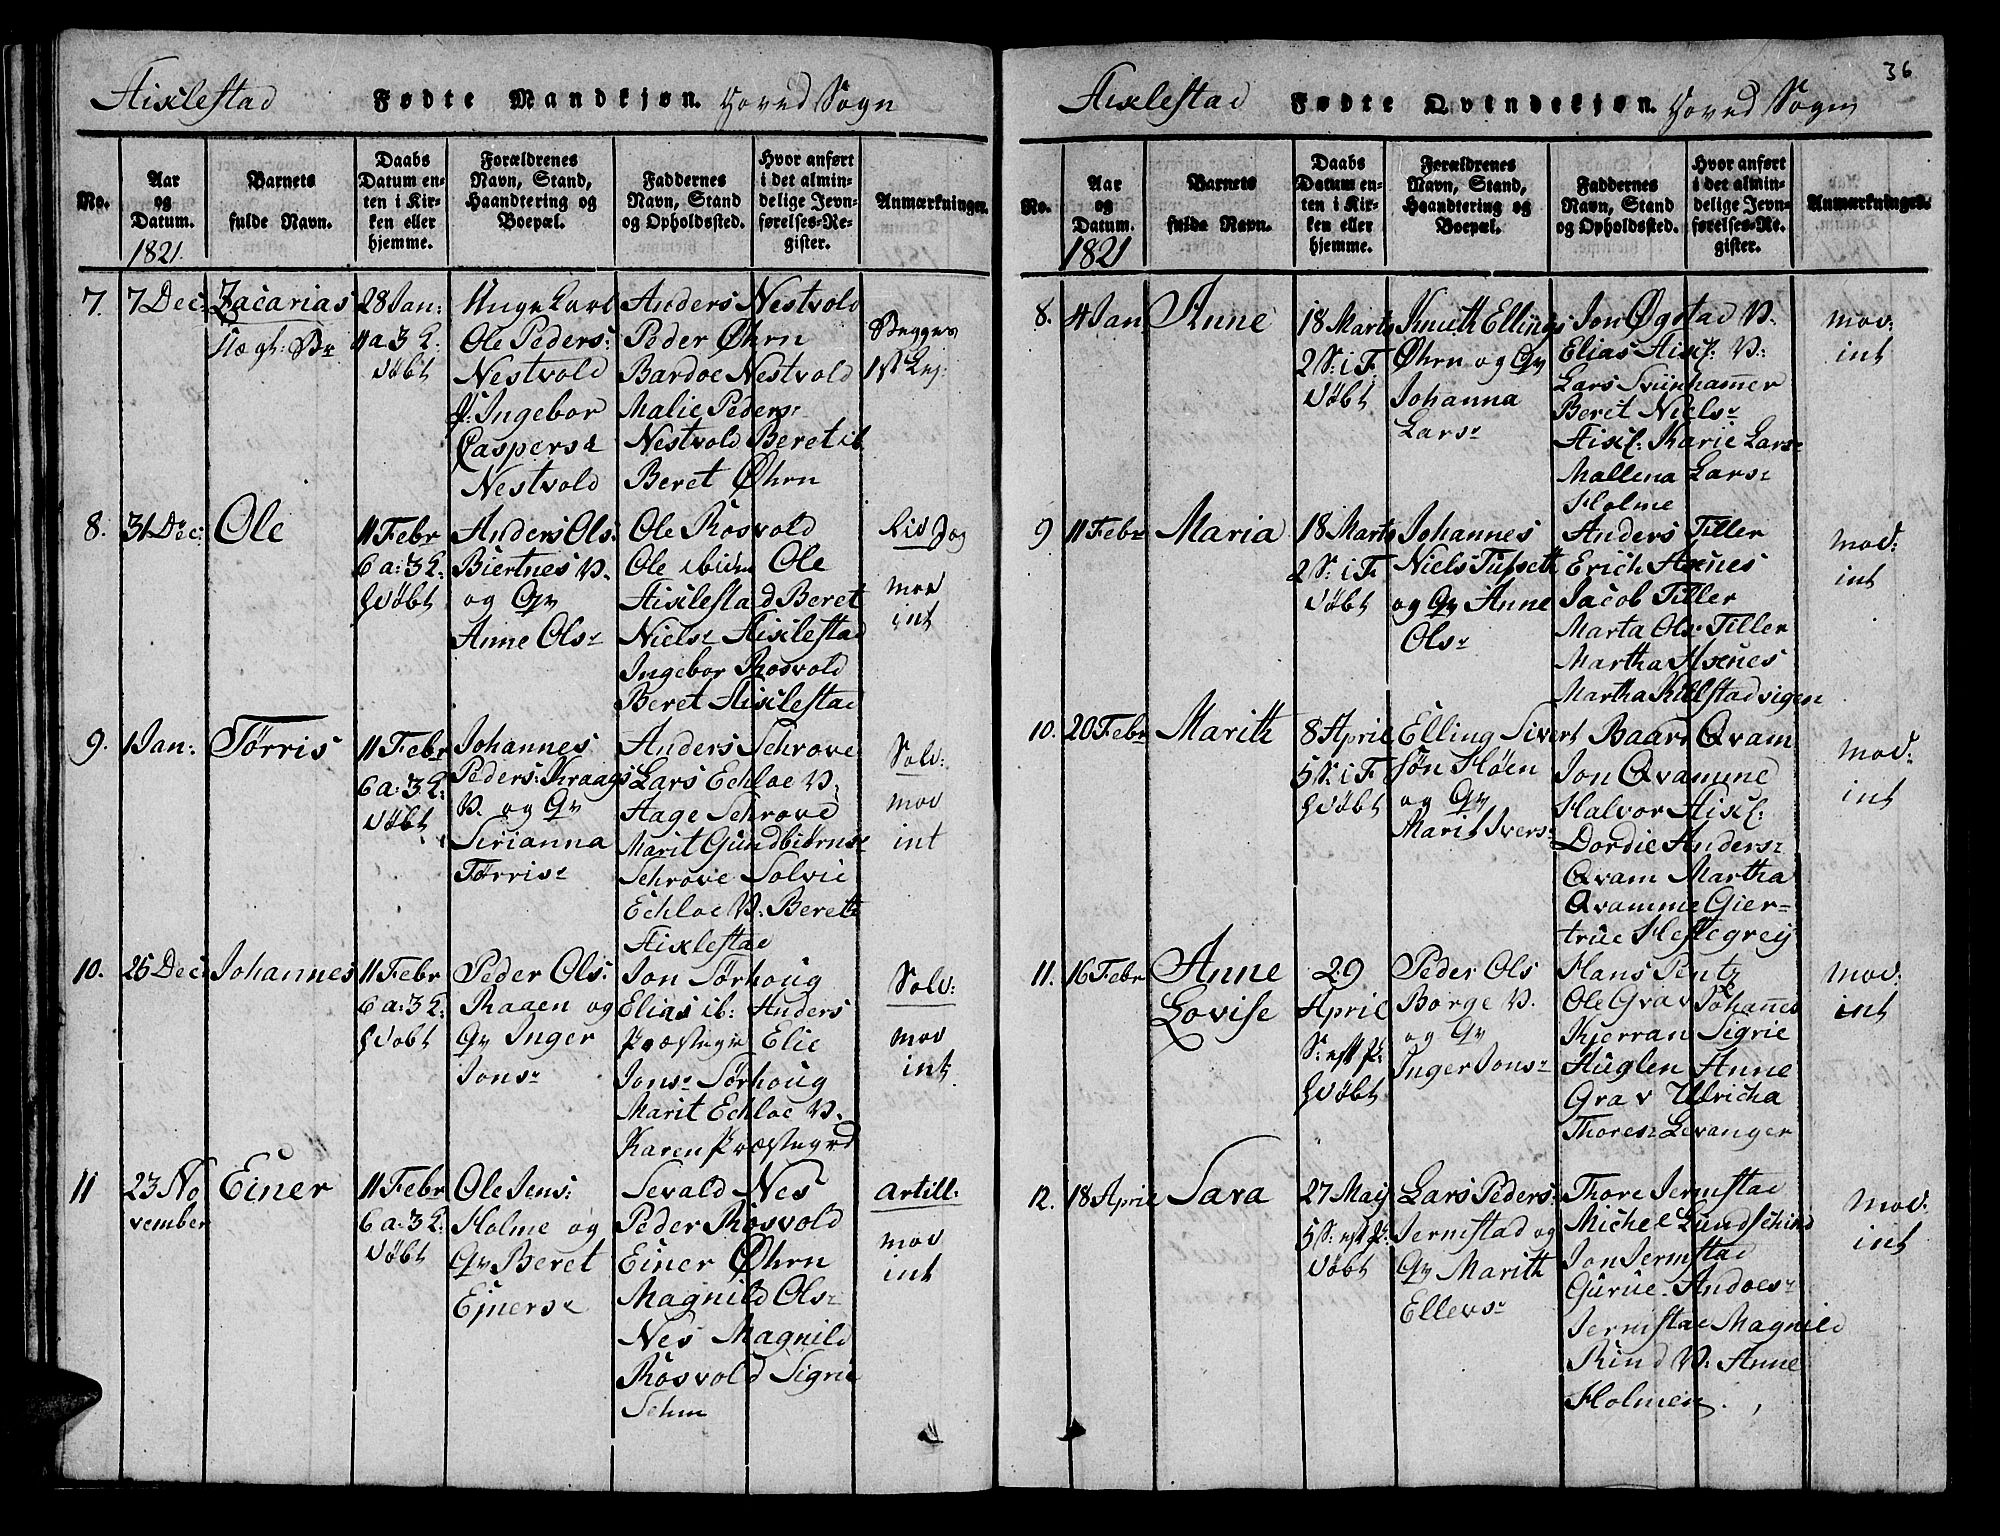 Aixlestad Fødte Mandkjøn. Hoved Sogn
No.
Aar
og
Datum.
1821.
Barnets
fulde Navn.
Daabs
Datum en-
ten i Kir-
ken eller
hjemme.
Forældrenes
Navn, Stand,
Haandtering og
Boepæl.
Faddernes
Navn, Stand
og Opholdssted.
Hvor anført
i det almin-
delige Jevn-
førelses-Re-
gister.
Anmærkninger.
7.
7 Dec
Zacarias
28 Jan:
4 a 3 L.
døbt
Unge Karl
Ole Peders:
Nestvold
P: Ingebor
Caspersd
Nestvold
Anders Nestvold
Peder Øhrn
Bardoe Nestvold
Malie Peders:
Nestvold Beret ib
Beret Øhrn
Begges
1st Lej:
8.
31 Dec:
Ole
11 Febr
6 a: 3 L:
døbt
Anders Ols:
Biertnes V.
og Qv
Anne Olsr
Ole Rosvold
Ole ibidm Ole
Aixlestad Beret
Nielsr Aixlestad
Ingebor Rosvold
Beret Aixlestad
mod
int
9.
1 Jan:
Tørris
11 Febr
6 a: 3 L:
døbt
Johannes
Peders: Kraags
V. og Qv
Sirianna
Tørrisr
Anders Schrove
Lars Echloe V.
Aage Schrove
Marit Gundbiørnsr
Schrove Solvie
Echloe V. Bereth
Aixlestad
Solv:
mod
int
10.
25 Dec
Johannes
11 Febr
6 a: 3 L:
døbt
Peder Ols:
Raaen og
Qv Inger
Jonsr
Jon Sørhoug
Elias ib: Anders
Præstegr Elie
Jonsr Sørhoug
Marit Echloe V.
Karen Præstegrd
Solv:
mod
int
11
23 No
vember
Einer
11 Febr
6 a: 3 L:
døbt
Ole Jens:
Holme og
Qv Beret
Ejnersd
Sevald Nes
Peder Rosvold
Einer Øhrn
Magnild Olsr
Nes Magnild
Rosvold Sigrie
Sehm
Artill:
mod
int
36
Aixlestad Fødte Qvindekjøn. Hoved Sogn
No.
Aar
og
Datum.
1821
Barnets
fulde Navn.
Daabs
Datum en-
ten i Kir-
ken eller
hjemme.
Forældrenes
Navn, Stand,
Haandtering og
Boepæl.
Faddernes
Navn, Stand
og Opholdssted.
Hvor anført
i det almin-
delige Jevn-
førelses-Re-
gister.
Anmærkninger.
8.
4 Jan
Anne
18 Marts
2 S: i F.
døbt
Knuth Ellings
Øhrn og Qv
Johanna
Larsr
Jon Øgstad V.
Elias Aixl: V:
Lars Svinhammer
Beret Nielsr
Aixl: Marie Larsr
Mallena Larsr
Holme
mod:
int
9
11 Febr
Maria
18 Marts
2 S: i F
døbt
Johannes
Niels Tufseth
og Qv Anne
Olsr
Anders Tiller
Erich Axnes
Jacob Tiller
Marta Olsr Tiller
Martha Axnes
Martha Killstadvigen
mod:
int
10.
20 Febr
Marith
8 April
5 S: i F
døbt
Elling Sivert
søn Høen
og Qv
Marit Iversr
Baar Qvam
Jon Qvamme
Halvor Aixl:
Dordie Andersr
Qvam Martha
Qvamme Gier-
true Hestegrej
mod:
int
11.
16 Febr
Anne
Lovise
29
April
S: eft P:
døbt
Peder Ols
Borge V.
og Qv
Inger Jonsr
Hans Pentz
Ole Grav Johannes
Kjerran Sigrie
Huglen Anne
Grav Ulricha
Thoresr Levanger
mod:
int
12.
18 April
Sara
27 Maj
5 S: eft P:
døbt
Lars Peders:
Jermstad og
Qv Marith
Ellevsr
Thore Jermstad
Michel Lundschind
Jon Jermstad
Gurue Andoesr
Jermstad Magnild
Rind V. Anne
Holmen.
mod:
int